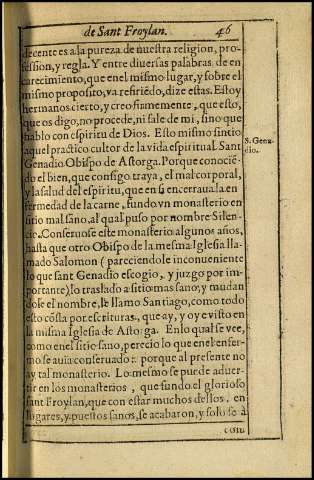 de Sant Froylan. 46
decente es a la pureza de nuestra religion, pro-
fession, y regla. Y entre diuersas palabras, de en
carecimiento, que en el mismo lugar, y sobre el
mismo proposito, va refiriẽdo, dize estas. Estoy
hermanos cierto, y creo firmemente, que esto,
que os digo, no procede, ni sale de mi, sino que
hablo con espiritu de Dios. Esto mismo sintio
aquel practico cultor de la vida espiritual. Sant
Genadio Obispo de Astorga. Porque conociē-
do el bien, que consigo traya, el mal corporal,
y la salud del espiritu, que en si encerraua la en
fermedad de la carne, fundo vn monasterio en
sitio mal sano, al qual puso por nombre Silen-
cio. Conseruose este monasterio algunos años,
hasta que otro Obispo de la mesma Iglesia lla-
mado Salomon (pareciendole inconueniente
lo que sant Genadio escogio, y juzgo por im-
portante) lo traslado a sitio mas sano, y mudan
dole el nombre, le llamo Santiago, como todo
esto cōsta por escrituras, que ay, y o ye visto en
la misma Iglesia de Astorga. En lo qual se vee,
como en el sitio sano, perecio lo que en el enfer-
mo se auia conseruado: porque al presente no
ay tal monasterio. Lo mesmo se puede aduer-
tir en los monasterios, que fundo el glorioso
sant Froylan, que con estar muchos dellos, en
lugares, y puestos sanos, se acabaron, y solo se à
con
S. Gena
dio.